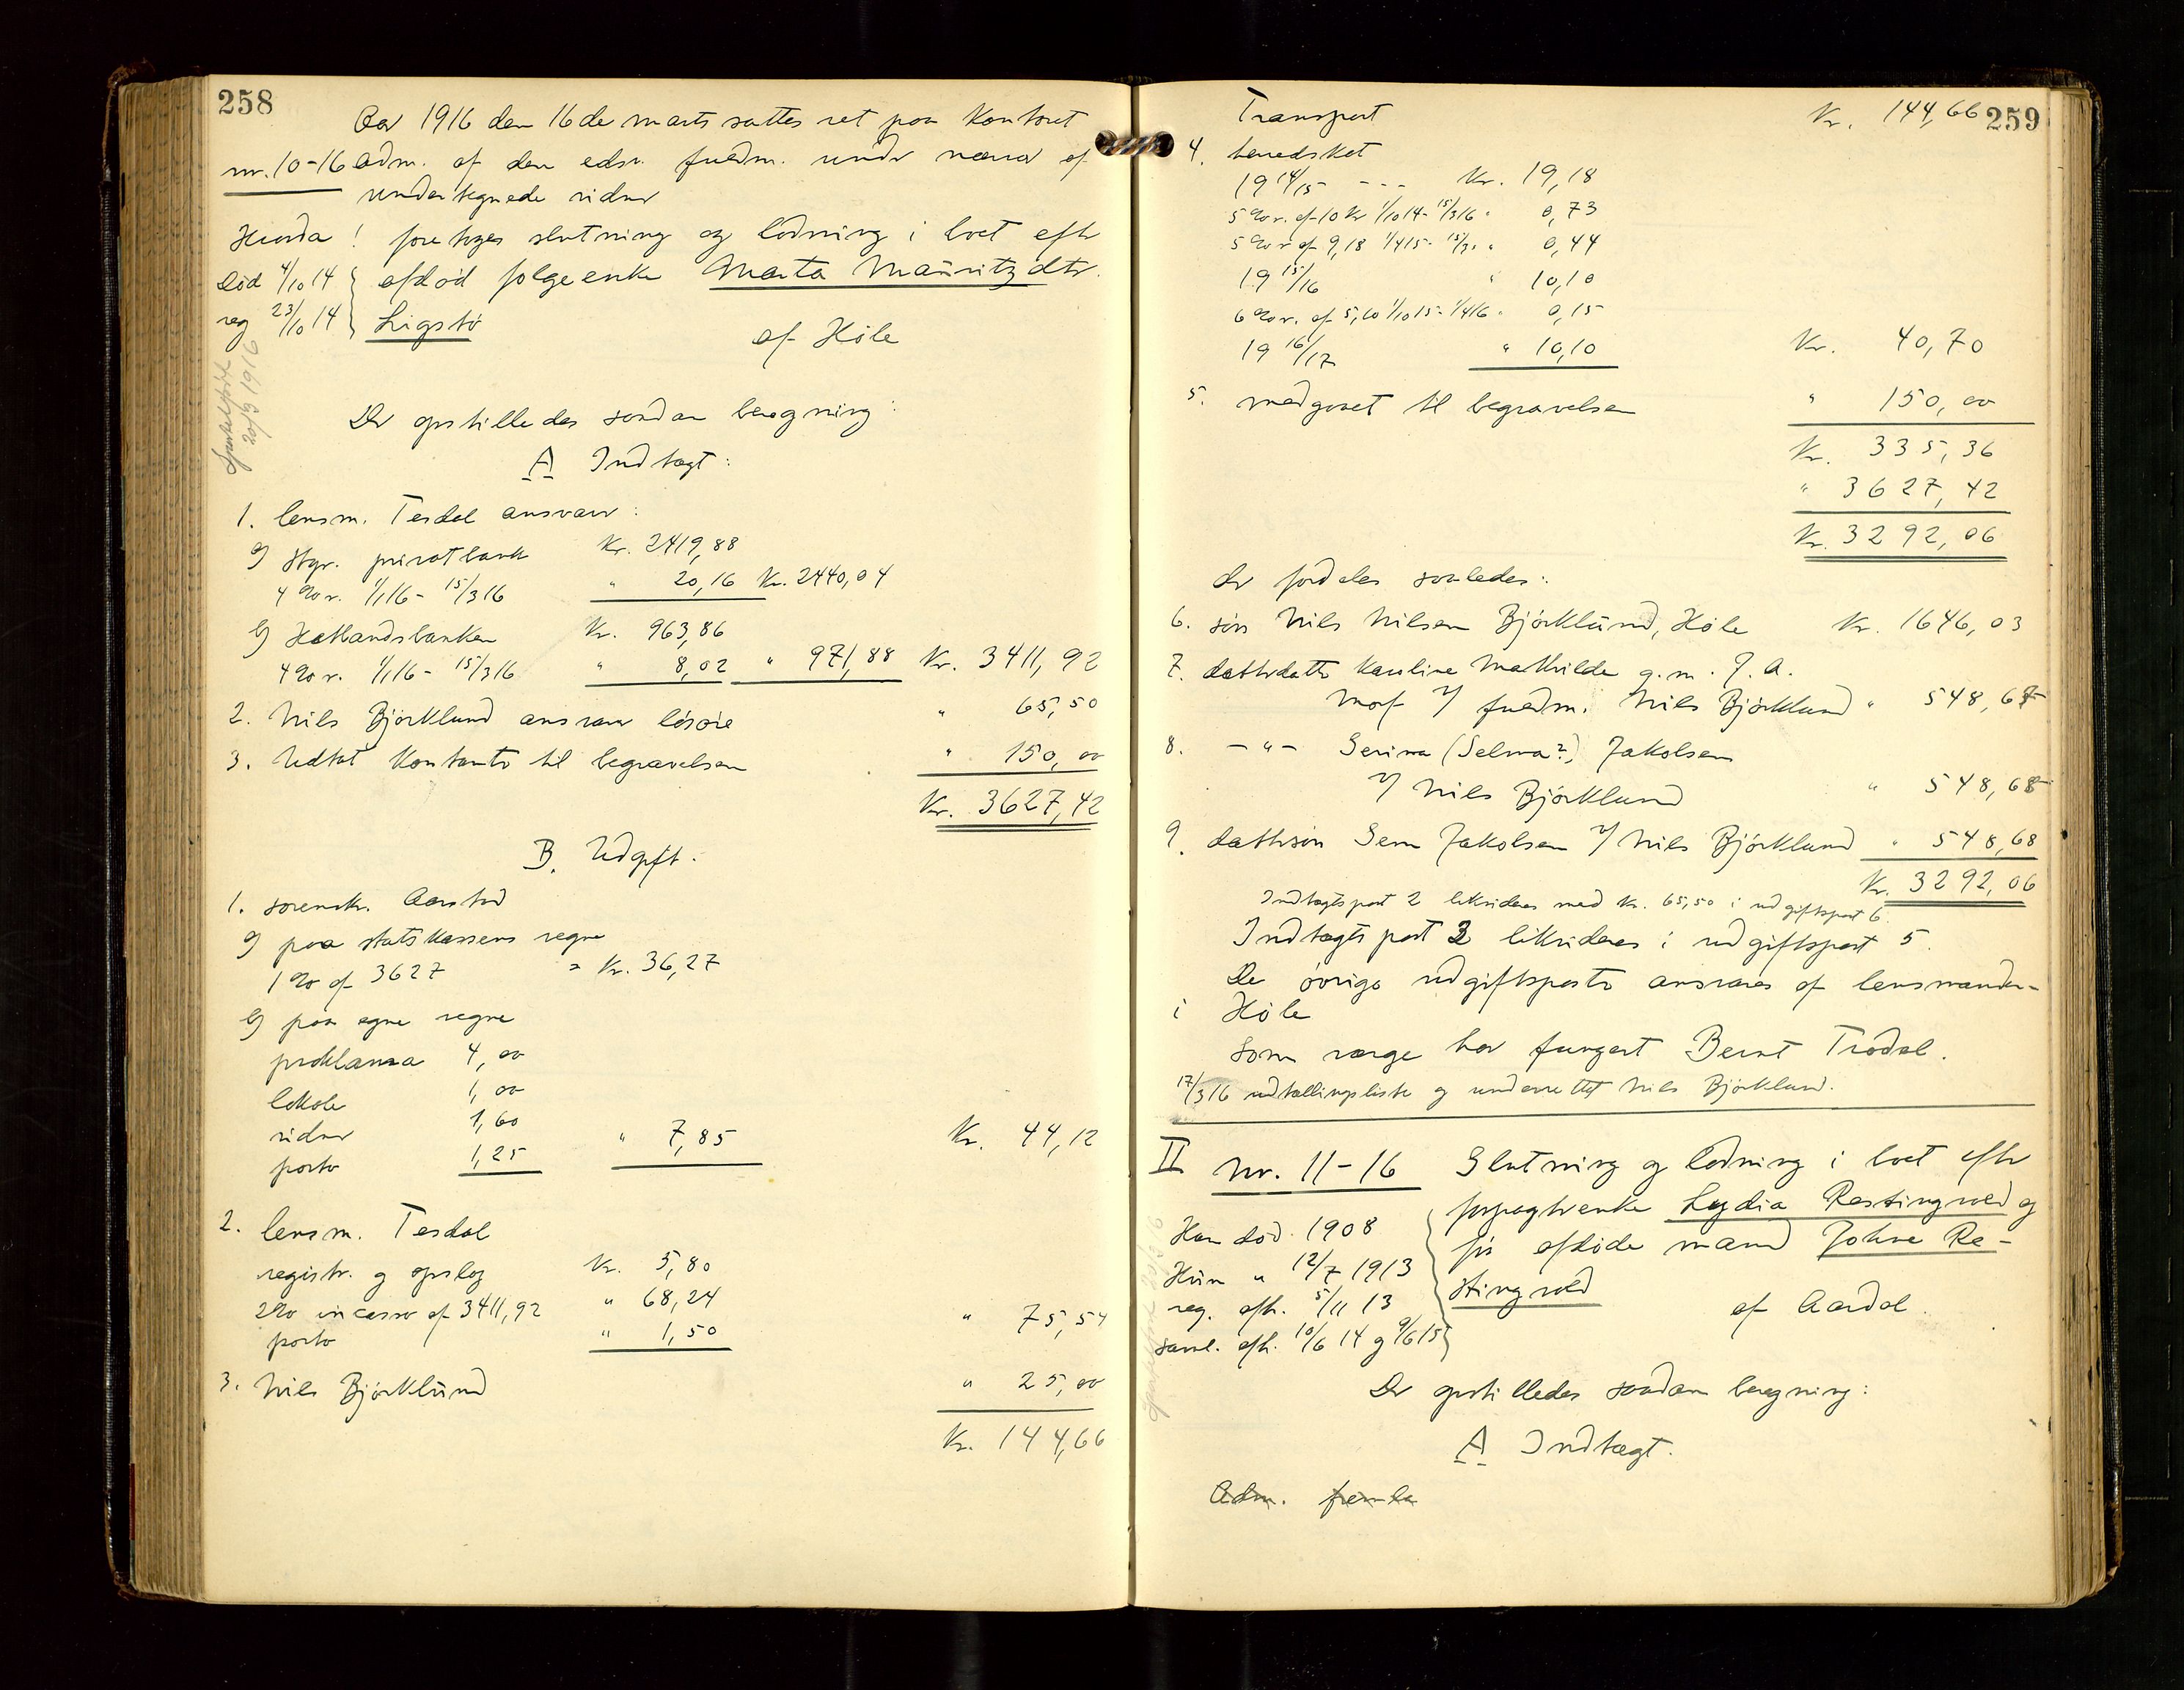 258
Aar 1916 den 16de marts sattes ret paa Kontoret
nr. 10-16 adm. af den edsv. fuldm. under nærvær af
undertegnede vidner
Hvorda! foretoges slutning og lodning i boet efter
død 4/10 14 afdød folgeenke Marta Mauritzdtr.
reg 23/10 14 Ligstø
af Höle
Sportelført 20/9 1916
Der opstilledes saadan beregning:
A Indtægt:
1. lensm. Tesdal ansvarer:
a) Stgr. privatbank Kr. 2419,88
4 % r. 1/1 16 - 15/3 16 " 20,16 Kr. 2440,04
b) Hetlandsbanken Kr. 963,86
4 % r. 1/1 16 - 15/3 16 " 8,02 " 971,88 Kr. 3411,92
2. Nils Björklund ansvarer lösöre " 65,50
3. Udtat Kontanter til begravelsen " 150,00
Kr. 3627,42
B. Udgift.
1. sorensk. Aarstad
a) paa statskassens regne
1 % af 3627 = Kr. 36,27
b) paa egne regne
proklama 4,00
lokale 1,00
vidner 1,60
porto 1,25 " 7,85 Kr. 44,12
2. lensm. Tesdal
registr. og opslag Kr. 5,80
2 % incasso af 3411,92 " 68,24
porto " 1,50 " 75,54
3. Nils Björklund " 25,00
Kr. 144,66
259
Transport Kr. 144,66
4. herredskat
19 14/15 - - - Kr. 19,18
5 % r. af 10 Kr 1/10 14 - 15/3 16 " 0,73
5 % r af 9,18 1/4 15 - 15/3 " " 0,44
19 15/16 " 10,10
6 % r. af 5,10 1/10 15 - 1/4 16 " 0,15
19 16/17 " 10,10 Kr. 40,70
5. medgaaet til begravelsen " 150,00
Kr. 335,36
" 3627,42
Kr. 3292,06
der fordeles saaledes:
6. sön Nils Nilsen Björklund, Höle Kr. 1646,03
7. datterdatter Karoline Mathilde g.m. J. A.
Morf v/ fuldm. Nils Björklund " 548,67
8. - " - Serina (Selma?) Jakobsen
v/ Nils Björklund " 548,68
9. dattersön Sem Jakobsen v/ Nils Björklund " 548,68
Kr. 3292,06
Indtægtspost 2 likvideres med kr. 65,50 i udgiftspost 6.
Indtægts post 3 likvideres i udgiftspost 5.
De övrige udgiftsposter ansvares af lensmanden
i Höle
Som værge har fungert Bernt Trodal.
17/3 16 udbetalingsliste og underrettet Nils Björklund.
II nr. 11-16 Slutning og lodning i boet efter
forpagterenke Lydia Restingvold og
Han död 1908 för afdöde mand Johne Re-
Hun " 12/7 1913 stingvold
reg. efh. 5/11 13 af Aardal.
saml. efh. 10/6 14 og 9/6 15
Der opstilledes saadan beregning:
A Indtægt.
Adm. fremla